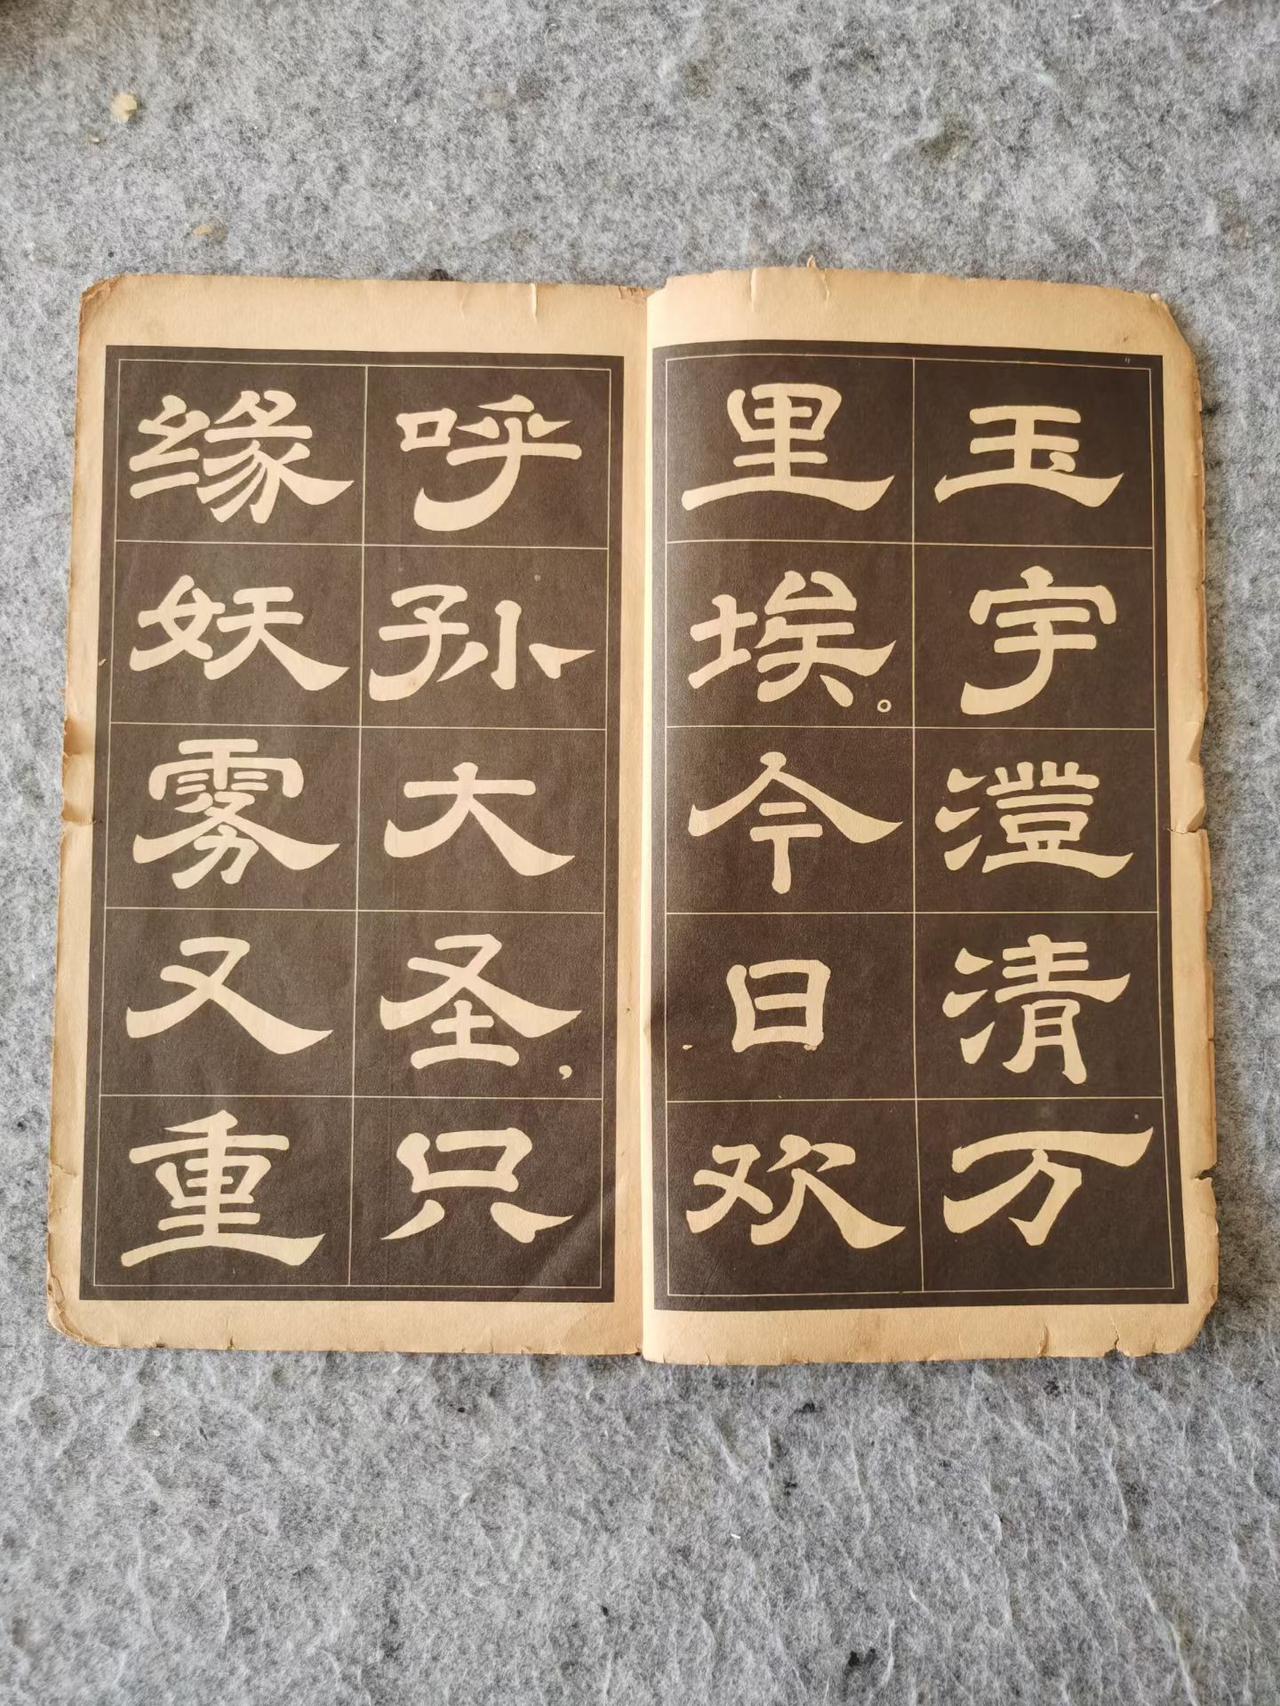 玉宇澧清万
里埃。今日欢
呼孙大圣，只
缘妖雾又重